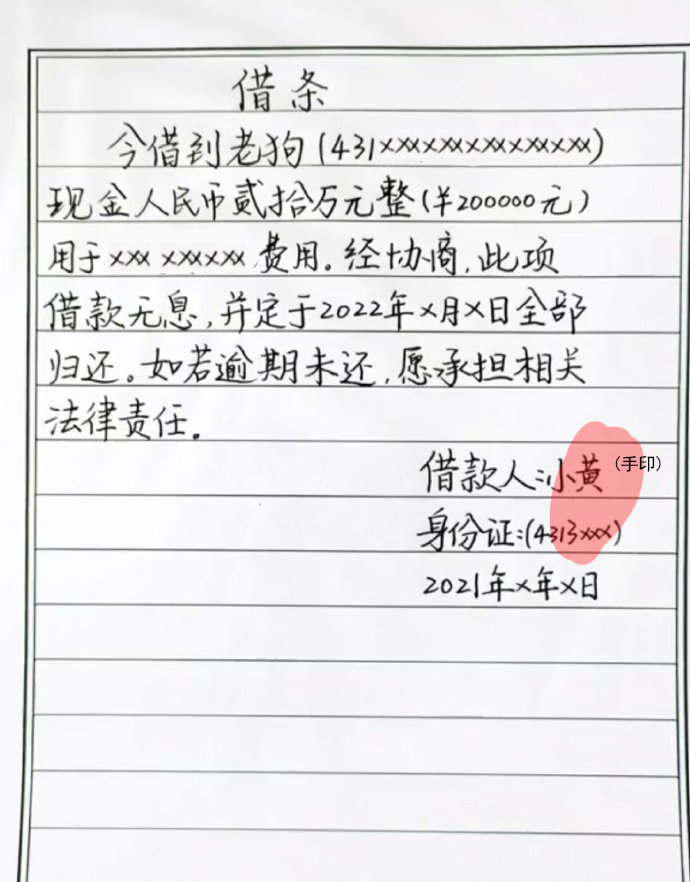 借条
今借到老狗(431xxxxxxxxxxxxxxx)
现金人民币贰拾万元整(¥200000元)
用于xxx xxxxxx费用。经协商,此项
借款无息,并定于2022年x月x日全部
归还。如若逾期未还,愿承担相关
法律责任。
借款人:小黄(手印)
身份证:(4313xxx)
2021年x年x日